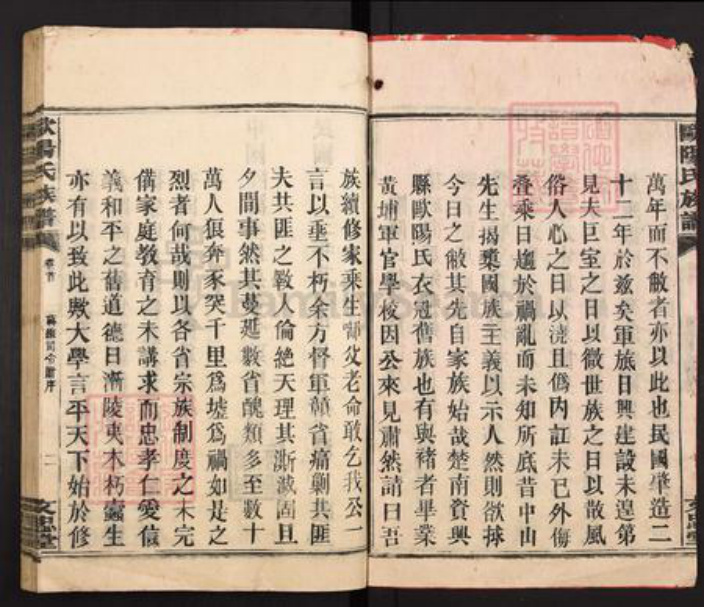 歐陽氏族譜
萬年而不敝者亦以此也民國肇造二
十二年於茲矣軍旅日興建設未遑第
見夫巨室之日以微世族之日以散風
俗人心之日以澆且僞內訌未已外侮
叠乘日趨於禍亂而未知所底昔中山
先生揭櫫國族主義以示人然則欲捄
今日之敝其先自家族始哉楚南資興
縣歐陽氏衣冠舊族也有與褚者畢業
黃埔軍官學校因公來見肅然請曰吾
族續修家乘生啣父老命敢乞我公一
言以垂不朽余方督軍贛省痛剿共匪
夫共匪之敎人倫絶天理其澌滅固旦
夕間事然其蔓延數省醜類多至數十
萬人狠奔豕突千里爲墟爲禍如是之
烈者何哉則以各省宗族制度之未完
備家庭教育之未講求而忠孝仁愛信
義和平之舊道德日漸陵夷木朽蠹生
亦有以致此歟大學言平天下始於修
歐陽氏族譜
卷首
二
文忠堂